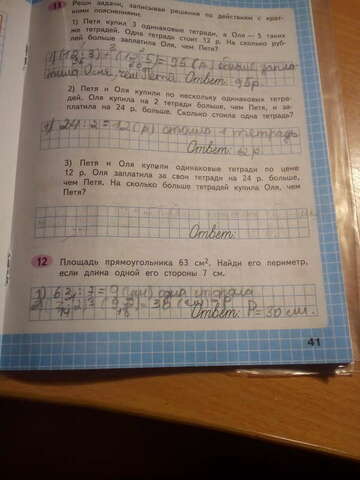 11 Реши задачи, записывая решения по действиям с крат-
кими пояснениями.
1) Петя купил 3 одинаковые тетради, а Оля — 5 таких
же тетрадей. Одна тетрадь стоит 12 р. На сколько руб-
лей больше заплатила Оля, чем Петя?
Оля чем Петя. Ответ:
2) Петя и Оля купили по нескольку одинаковых тетра-
дей. Оля купила на 2 тетради больше, чем Петя, и за-
платила на 24 р. больше. Сколько стоила одна тетрадь?
1) 24:2=12(р) стоила 1 тетрадь
Ответ:
3) Петя и Оля купили одинаковые тетради по цене
12 р. Оля заплатила за свои тетради на 24 р. больше,
чем Петя. На сколько больше тетрадей купила Оля, чем
Петя?
Ответ:
12 Площадь прямоугольника 63 см². Найди его периметр,
если длина одной его стороны 7 см.
1) 63:7=9 (см) одна сторона
Ответ: P=30 см.
41